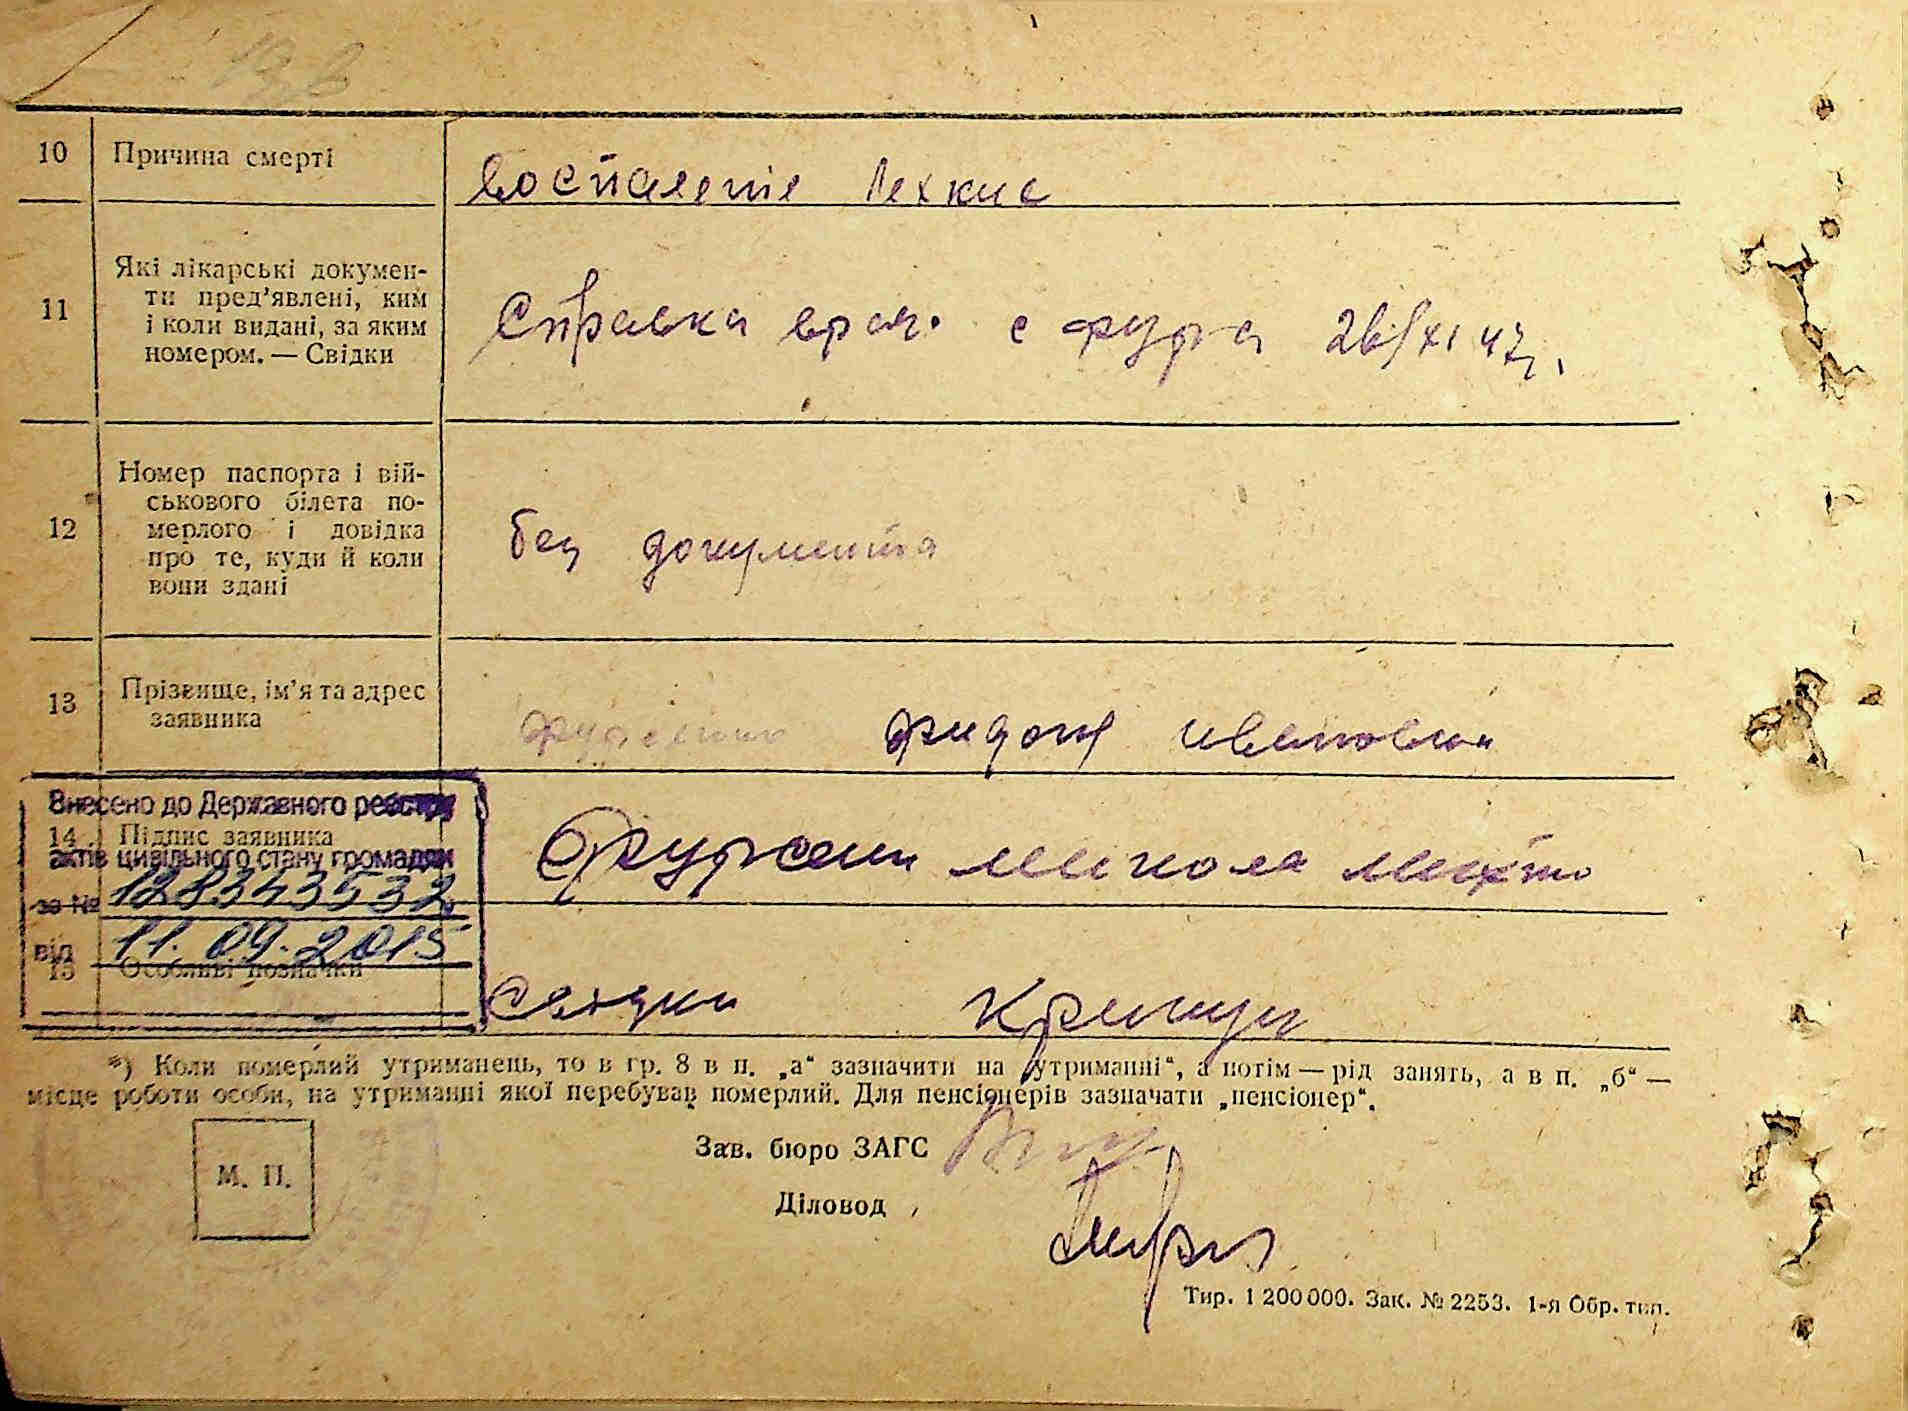 10 Причина смерті
воспаление Лехкие
11 Які лікарські докумен-
ти пред'явлені, ким
і коли видані, за яким
номером. — Свідки
Справка врач. с 26/XI 47г.
12 Номер паспорта і вій-
ськового білета по-
мерлого і довідка
про те, куди й коли
вони здані
без документа
13 Прізвище, ім'я та адрес
заявника
ивановна
Внесено до Державного реєстру
14 Підпис заявника
актів цивільного стану громадян
за № 12834353 2
від 11.09.2015
15 Особливі позначки
*) Коли померлий утриманець, то в гр. 8 в п. „а“ зазначити на „утриманні“, а потім — рід занять, а в п. „б“ —
місце роботи особи, на утриманні якої перебував померлий. Для пенсіонерів зазначати „пенсіонер“.
Зав. бюро ЗАГС
М. П.
Діловод
Тир. 1 200 000. Зак. № 2253. 1-я Обр. тип.